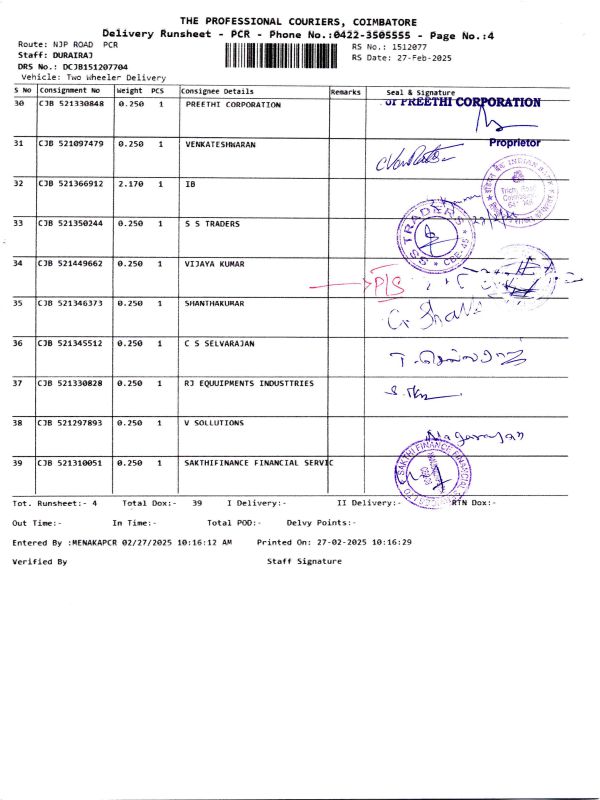 THE PROFESSIONAL COURIERS, COIMBATORE
Delivery Runsheet - PCR - Phone No.:0422-3505555 - Page No.:4
Route: NJP ROAD PCR
RS No.: 1512077
Staff: DURAIRAJ
RS Date: 27-Feb-2025
DRS No.: DCJB151207704
Vehicle: Two Wheeler Delivery
S No Consignment No Weight PCS Consignee Details Remarks Seal & Signature
30 CJB 521330848 0.250 1 PREETHI CORPORATION
PREETHI CORPORATION
Proprietor
31 CJB 521097479 0.250 1 VENKATESHWARAN
32 CJB 521366912 2.170 1 IB
INDIAN BANK
33 CJB 521350244 0.250 1 S S TRADERS
SS TRADERS
34 CJB 521449662 0.250 1 VIJAYA KUMAR
P/S
35 CJB 521346373 0.250 1 SHANTHAKUMAR
36 CJB 521345512 0.250 1 C S SELVARAJAN
37 CJB 521330828 0.250 1 RJ EQUUIPMENTS INDUSTTRIES
38 CJB 521297893 0.250 1 V SOLLUTIONS
Nagarajan
39 CJB 521310051 0.250 1 SAKTHIFINANCE FINANCIAL SERVIC
SAKTHI FINANCE FINANCIAL
Tot. Runsheet:- 4 Total Dox:- 39 I Delivery:- II Delivery:- RTN Dox:-
Out Time:- In Time:- Total POD:- Delvy Points:-
Entered By :MENAKAPCR 02/27/2025 10:16:12 AM Printed On: 27-02-2025 10:16:29
Verified By Staff Signature